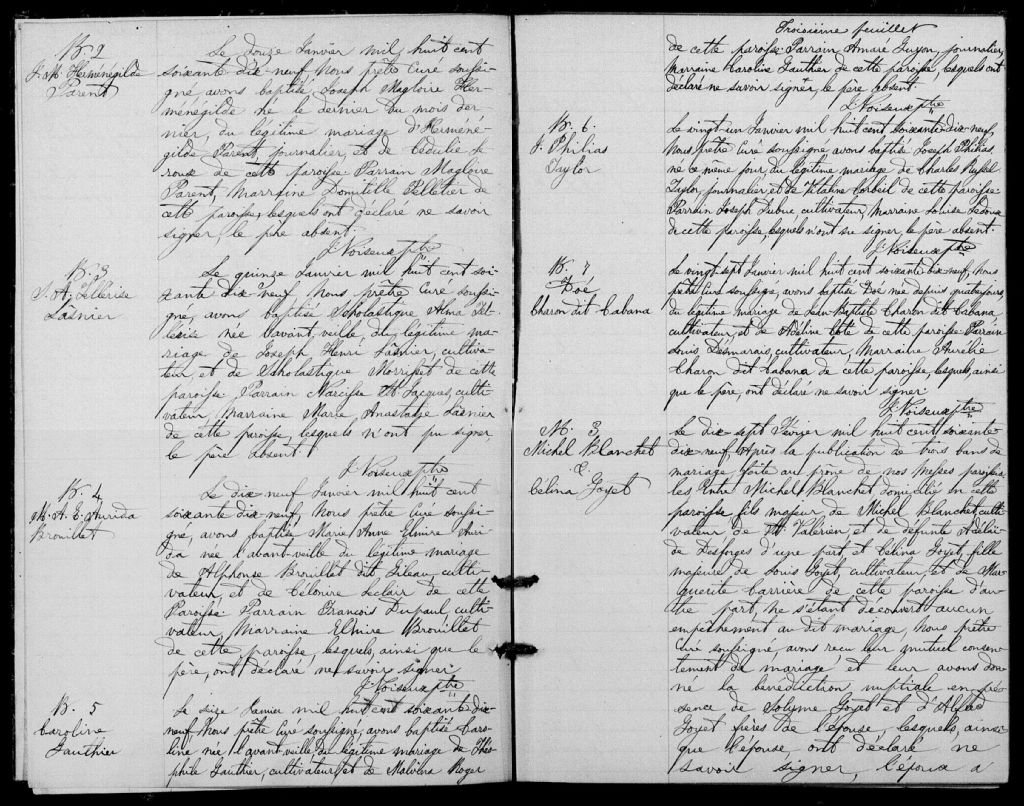 B. 2
J. M. Herménégilde
Parent
Le douze Janvier mil huit cent
soixante dix-neuf, Nous prêtre Curé soussi-
gné, avons baptisé Joseph Magloire Her-
ménégilde né le dernier du mois der-
nier, du légitime mariage d'Herméné-
gilde Parent, journalier, et de Cédulie
de cette paroisse. Parrain Magloire
Parent, Marraine Domitille Pelletier de
cette paroisse, lesquels ont déclaré ne savoir
signer, le père absent.
J. Noiseux ptre
B. 3
S. A. Tellerise
Lasnier
Le quinze Janvier mil huit cent soi-
xante dix-neuf, Nous prêtre Curé soussi-
gné, avons baptisé Scholastique Alma
née l'avant-veille, du légitime ma-
riage de Joseph Henri Lasnier, cultiva-
teur, et de Scholastique Morrisset de cette
paroisse. Parrain Narcisse St Jacques, culti-
vateur, Marraine Marie Anastasie Lasnier
de cette paroisse, lesquels n'ont pu signer
le père absent.
J. Noiseux ptre
B. 4
M. A. E. Aurida
Brouillet
Le dix-neuf Janvier mil huit cent
soixante dix-neuf, Nous prêtre Curé soussi-
gné, avons baptisé Marie Anne Elmire Auri-
da née l'avant-veille du légitime mariage
de Alphonse Brouillet dit Gileau culti-
vateur, et de Célonire Leclair de cette
Paroisse. Parrain François Dupaul, culti-
vateur, Marraine Elmire Brouillet
de cette paroisse, lesquels, ainsi que le
père, ont déclaré ne savoir signer.
J. Noiseux ptre
B. 5
Caroline
Gauthier
Le seize Janvier mil huit cent soixante dix-
neuf, Nous prêtre Curé soussigné, avons baptisé Caro-
line née l'avant-veille, du légitime mariage de Théo-
phile Gauthier, cultivateur, et de Malvina Roger
Troisième feuillet
de cette paroisse. Parrain Amaré Guyon, journalier,
Marraine Caroline Gauthier de cette paroisse, lesquels ont
déclaré ne savoir signer, le père absent.
J. Noiseux ptre
B. 6
J. Philias
Taylor
Le vingt-un Janvier mil huit cent soixante-dix-neuf,
Nous prêtre Curé soussigné avons baptisé Joseph Philias
né ce même jour, du légitime mariage de Charles
Taylor, journalier, et de Corbeil de cette paroisse.
Parrain Joseph Dubuc cultivateur, Marraine Louise Ledoux
de cette paroisse, lesquels n'ont su signer, le père absent.
J. Noiseux ptre
B. 7
Zoé
Charon dit Cabana
Le vingt-sept Janvier mil huit cent soixante dix-neuf, Nous
prêtre Curé soussigné, avons baptisé Zoé née depuis quatre jours,
du légitime mariage de Jean-Baptiste Charon dit Cabana,
cultivateur, et de Adéline Côté de cette paroisse. Parrain
Louis Desmarais, cultivateur, Marraine Aurélie
Charon dit Cabana de cette paroisse, lesquels, ainsi
que le père, ont déclaré ne savoir signer.
J. Noiseux ptre
M. 3
Michel Blanchet
&
Célina Goyet
Le dix-sept Février mil huit cent soixante
dix-neuf, Après la publication de trois bans de
mariage faite au prône de nos Messes paroissia-
les Entre Michel Blanchet domicilié en cette
paroisse, fils majeur de Michel Blanchet, culti-
vateur de St Valérien, et de défunte Adélaï-
de Desforges d'une part, et Célina Goyet, fille
majeure, de Louis Goyet, cultivateur, et de Mar-
guerite Barrière de cette paroisse d'au-
tre part, ne s'étant découvert aucun
empêchement au dit mariage, Nous prêtre
Curé soussigné, avons reçu leur mutuel consen-
tement de mariage et leur avons don-
né la bénédiction nuptiale en pré-
sence de Solyme Goyet et d'Alfred
Goyet frères de l'épouse, lesquels, ainsi
que l'épouse, ont déclaré ne
savoir signer, l'époux a